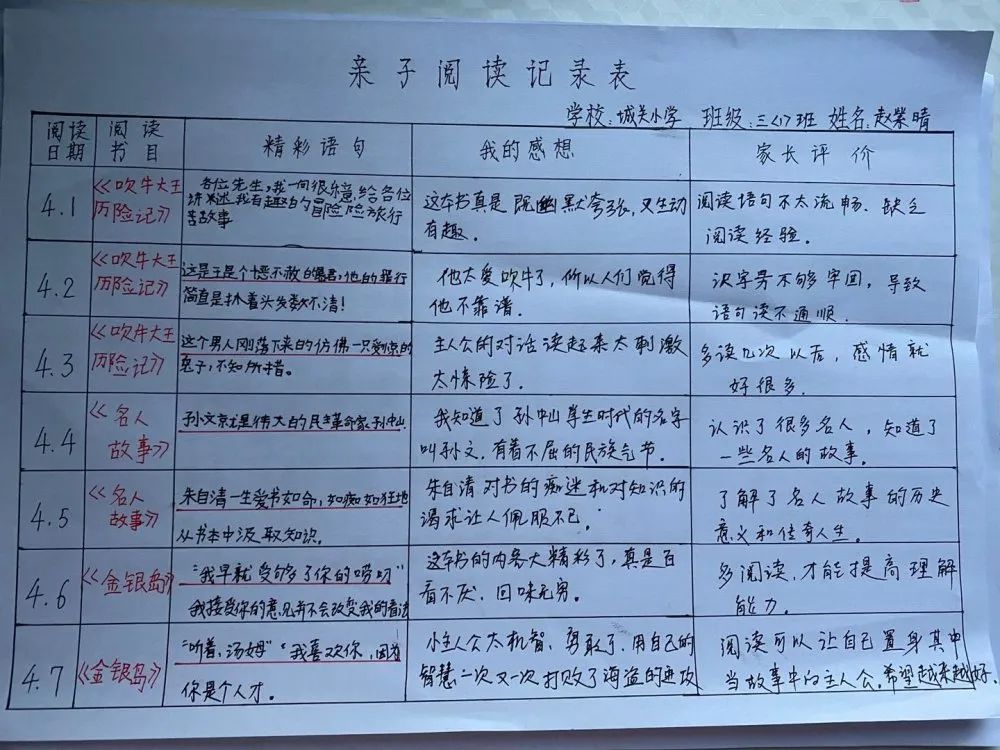 亲子阅读记录表
学校:城关小学 班级:三<1>班 姓名:赵紫晴
阅读日期 阅读书目 精彩语句 我的感想 家长评价
4.1
《吹牛大王
历险记》
各位先生,我一向很乐意,给各位
讲述我有趣的冒险险旅行
苦故事
这本书真是既幽默夸张,又生动
有趣。
阅读语句不太流畅、缺乏
阅读经验。
4.2
《吹牛大王
历险记》
这是王是个十恶不赦的暴君,他的罪行
简直是扑着头发数不清!
他太爱吹牛了,所以人们觉得
他不靠谱.
识字另不够牢固,导致
语句读不通顺.
4.3
《吹牛大王
历险记》
这个男人刚落下来的仿佛一只受惊的
兔子,不知所措。
主人公的对话读起来太刺激
太惊险了.
多读几次以后,感情就
好很多.
4.4
《名人
故事》
孙文就是伟大的民主革命家孙中山
我知道了孙中山学生时代的名字
叫孙文,有着不屈的民族气节.
认识了很多名人,知道了
一些名人的故事.
4.5
《名人
故事》
朱自清一生爱书如命,如痴如狂地
从书本中汲取知识.
朱自清对书的痴迷和对知识的
渴求让人佩服不已.
了解了名人故事的历史
意义和传奇人生.
4.6
《金银岛》
"我早就受够了你的唠叨"
我接受你的意见并不会改变我的看法
这本书的内容大精彩了,真是百
看不厌、回味无穷.
多阅读,才能提高理解
能力.
4.7
《金银岛》
"听着、汤姆""我喜欢你,因为
你是个人才.
小主人公太机智、勇敢了,用自己的
智慧、一次又一次打败了海盗的进攻
阅读可以让自己置身其中
当故事中的主人公,希望越来越好.